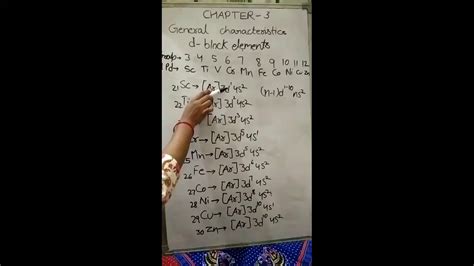 CHAPTER-3
General characteristics
d-block elements
3 4 5 6 7 8 9 10 11 12
Pd→ Sc Ti V Cr Mn Fe Co Ni Cu Zn
21Sc→[Ar]3d¹4s² (n-1)d¹⁻¹⁰ns²
22Ti 3d²4s²
3d³4s²
[Ar]3d⁵4s¹
Mn→[Ar]3d⁵4s²
26Fe→[Ar]3d⁶4s²
27Co→[Ar]3d⁷4s²
28Ni→[Ar]3d⁸4s²
29Cu→[Ar]3d¹⁰4s¹
30Zn→[Ar]3d¹⁰4s²